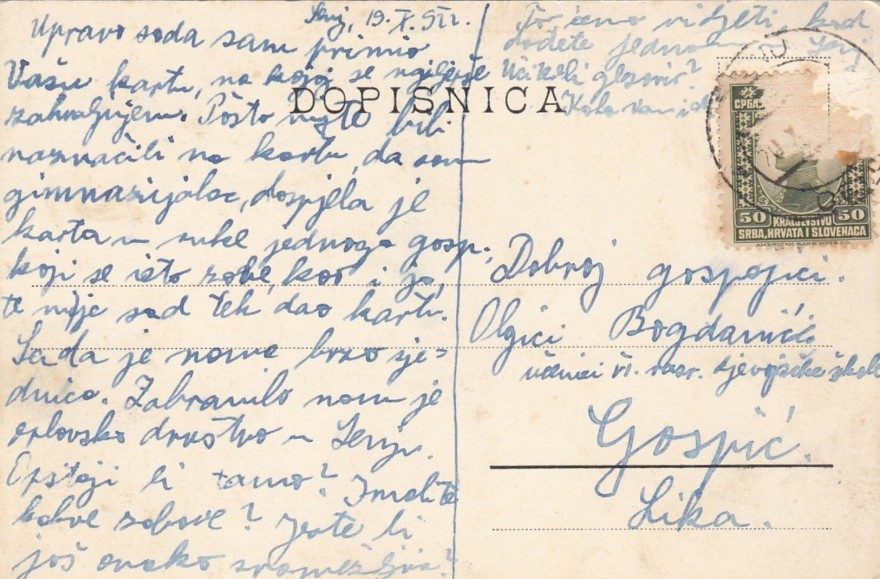 Senj, 19. X. 922.
Upravo sada sam primio
Vašu kartu, na kojoj se najljepše
zahvaljujem. Pošto niste bili
naznačili na kartu, da sam
gimnazijalac, dospjela je
karta u ruke jednoga gosp.,
koji se isto zove, kao i ja,
te mi je sad tek dao kartu.
Sada je nova brzo sje-
dnica. Zabranilo nam je
orlovsko društvo u Senju.
Opstoji li tamo? Imali te
kakve zabave? Jeste li
još onako sramežljiva?
To ćemo vidjeti, kad
dođete jednom Senj
Učite li glasovir?
DOPISNICA
СРБА
50 KRALJEVSTVO 50
SRBA, HRVATA I SLOVENACA
AMERICAN BANK NOTE CO.
Dobroj gospojici.
Olgici Bogdanić
učenici VI. razr. djevojačke škole
Gospić.
Lika.